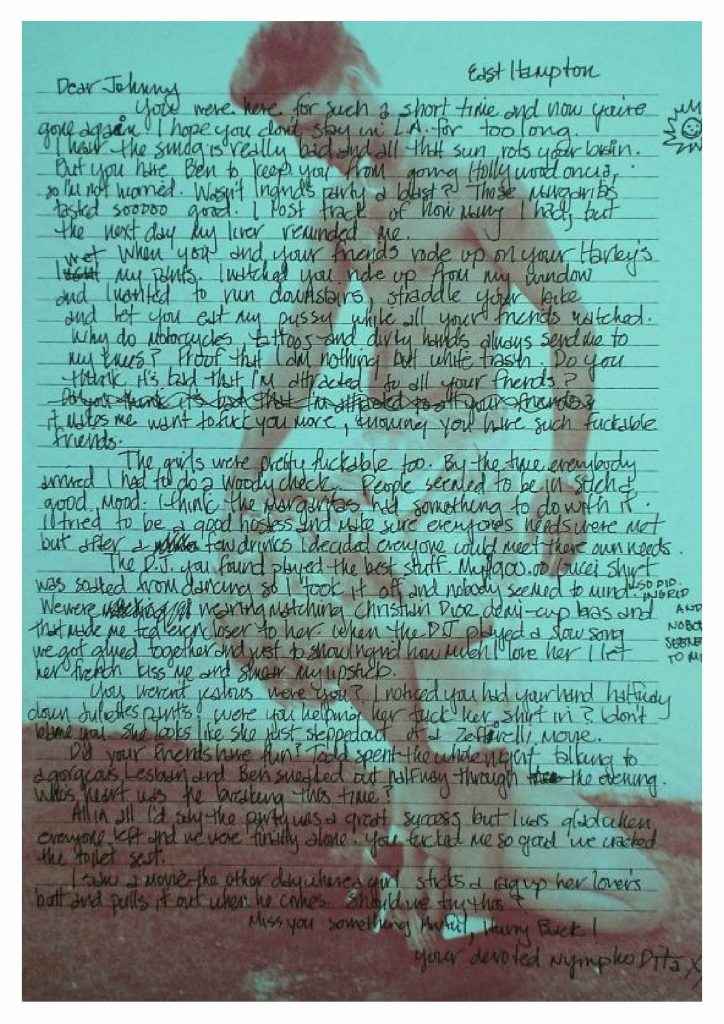 East Hampton
Dear Johnny
You were here for such a short time and now you're
gone again. I hope you don't stay in L.A. for too long.
I hear the smog is really bad and all that sun rots your brain.
But you have Ben to keep you from going Hollywood on us,
so I'm not worried. Wasn't Ingrid's party a blast? Those margaritas
tasted sooooo good. I lost track of how many I had, but
the next day my liver reminded me.
When you and your friends rode up on your Harley's
I wet my pants. I watched you ride up from my window
and I wanted to run downstairs straddle your bike
and let you eat my pussy while all your friends watched.
Why do motorcycles, tattoos and dirty hands always send me to
my knees? Proof that I am nothing but white trash. Do you
think it's bad that I'm attracted to all your friends?
Do you think it's bad that I'm attracted to all your friends?
it makes me want to fuck you more, knowing you have such fuckable
friends.
The girls were pretty fuckable too. By the time everybody
arrived I had to do a woody check. People seemed to be in such a
good mood. I think the margaritas had something to do with it.
I tried to be a good hostess and make sure everyone's needs were met
but after a few drinks I decided everyone could meet there own needs.
The D.J. you found played the best stuff. My 900.00 Gucci shirt
was soaked from dancing so I took it off and nobody seemed to mind. ALSO DID INGRID
AND NOBODY SEEMED TO MIND
We were wearing matching Christian Dior demi-cup bras and
that made me feel even closer to her. When the DJ played a slow song
we got glued together and just to show Ingrid how much I love her I let
her french kiss me and smear my lipstick.
You weren't jealous were you? I noticed you had your hand halfway
down Juliette's pants. Were you helping her tuck her shirt in? I don't
blame you. She looks like she just stepped out of a Zeffirelli movie.
Did your friends have fun? Todd spent the whole night talking to
a gorgeous Lesbian and Ben sneaked out halfway through the evening.
Who's heart was he breaking this time?
All in all I'd say the party was a great success but I was glad when
everyone left and we were finally alone. You fucked me so good we cracked
the toilet seat.
I saw a movie the other day where a girl sticks a rag up her lover's
butt and pulls it out when he comes. Should we try this?
Miss you something Awful, Hurry Back!
Your devoted Nympho Dita X